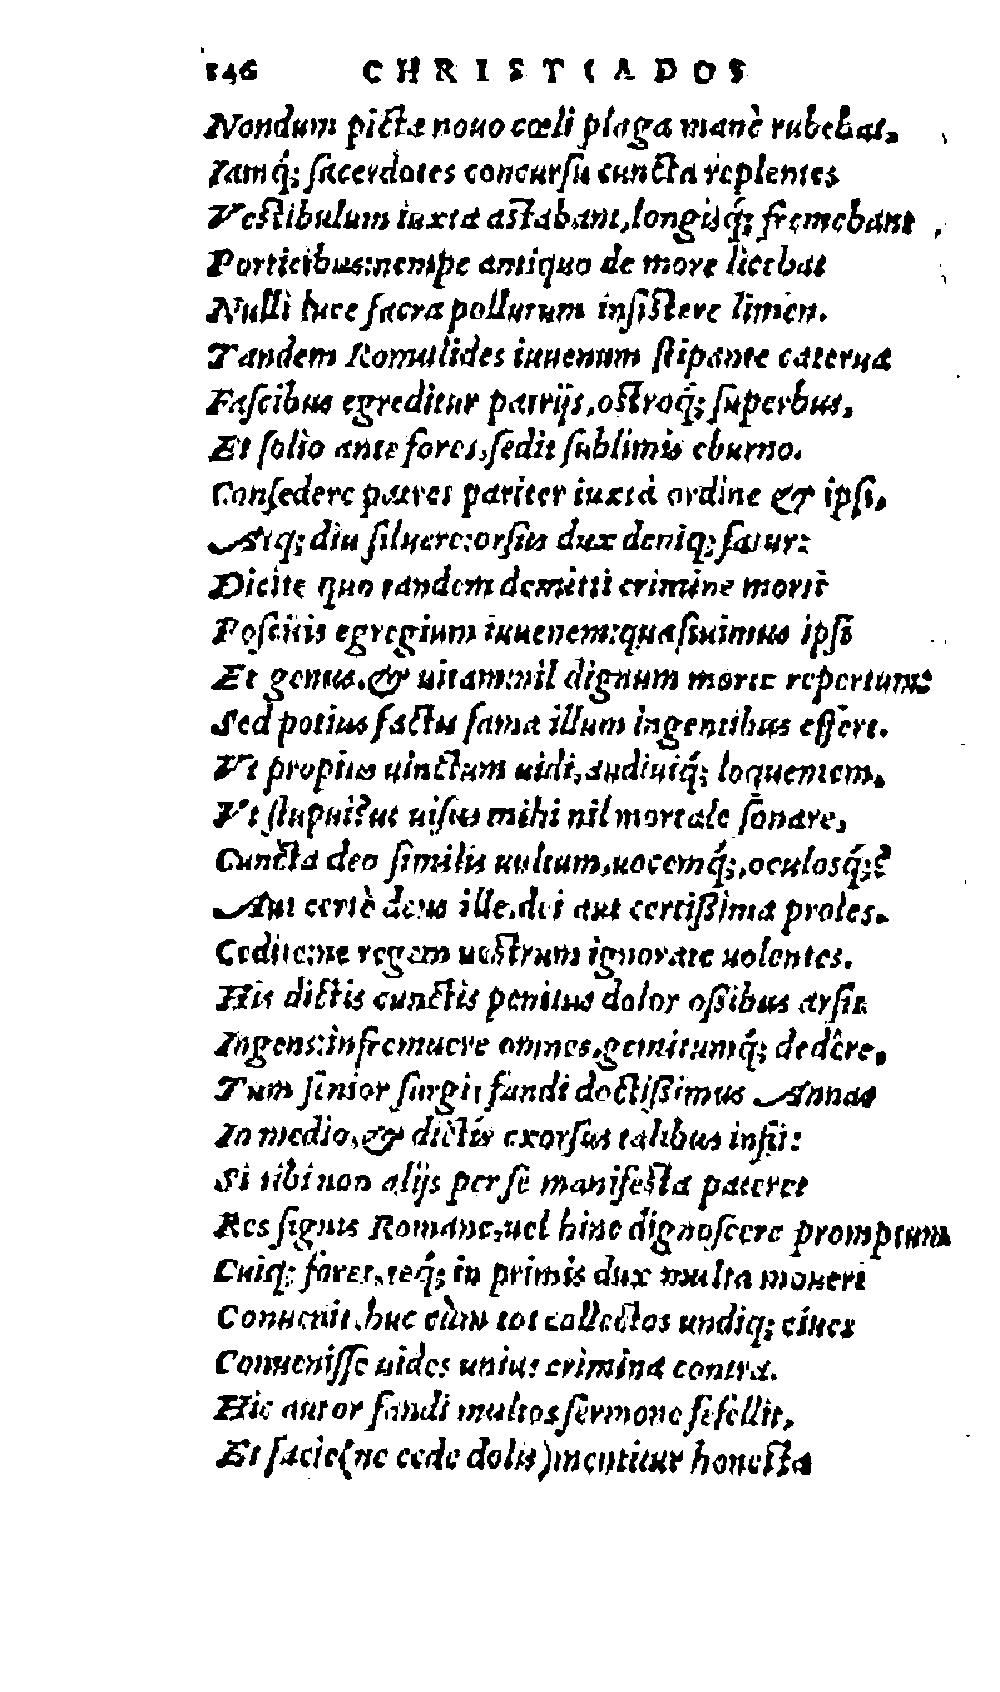 146 CHRISTIADOS
Nondum picta nouo cœli plaga manè rubebat,
Iamq́; ſacerdotes concurſu cuncta replentes
Veſtibulum iuxta aſtabant, longisq́; fremebant
Porticibus: nempe antiquo de more licebat
Nulli luce ſacra pollutum inſiſtere limen.
Tandem Romulides iuuenum ſtipante caterua
Faſcibus egreditur patrijs, oſtroq́; ſuperbus,
Et ſolio ante fores, ſedit ſublimis eburno.
Conſedere patres pariter iuxtà ordine & ipſi,
Atq; diu ſiluere: orſus dux deniq; fatur:
Dicite quo tandem demitti crimine morti
Poſcitis egregium iuuenem: quæſiuimus ipſi
Et genus, & uitam: nil dignum morte repertum:
Sed potius factu fama illum ingentibus effert.
Vt propius uinctum uidi, audiuiq́; loquentem,
Vt ſtupui? ut uiſus mihi nil mortale ſonare,
Cuncta deo ſimilis uultum, uocemq́;, oculosq́;?
Aut certè deus ille, dei aut certißima proles.
Cedite: ne regem ueſtrum ignorate uolentes.
His dictis cunctis penitus dolor oßibus arſit
Ingens: infremuere omnes, gemitumq́; dedêre,
Tum ſenior ſurgit fandi doctißimus Annas
In medio, & dictis exorſus talibus inſit:
Si tibi non alijs per ſe manifeſta pateret
Res ſignis Romane, uel hinc dignoſcere promptum
Cuiq; foret, teq́; in primis dux multa moueri
Conuenit, huc cùm tot collectos undiq; ciues
Conueniſſe uides unius crimina contra.
Hic autor fandi multos ſermone fefellit,
Et facie (ne cede dolis) mentitur honeſta